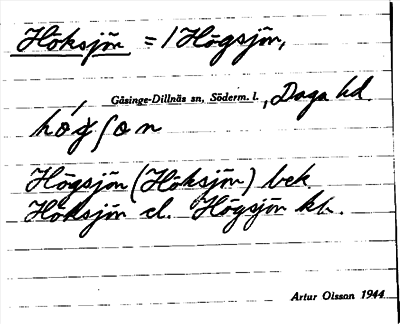 Höksjön = / Högsjön,
Gåsinge-Dillnäs sn, Söderm. l., Daga hd.
Högsjön (Höksjön) bek.
Höksjön el. Högsjön kb.
Artur Olsson 1944